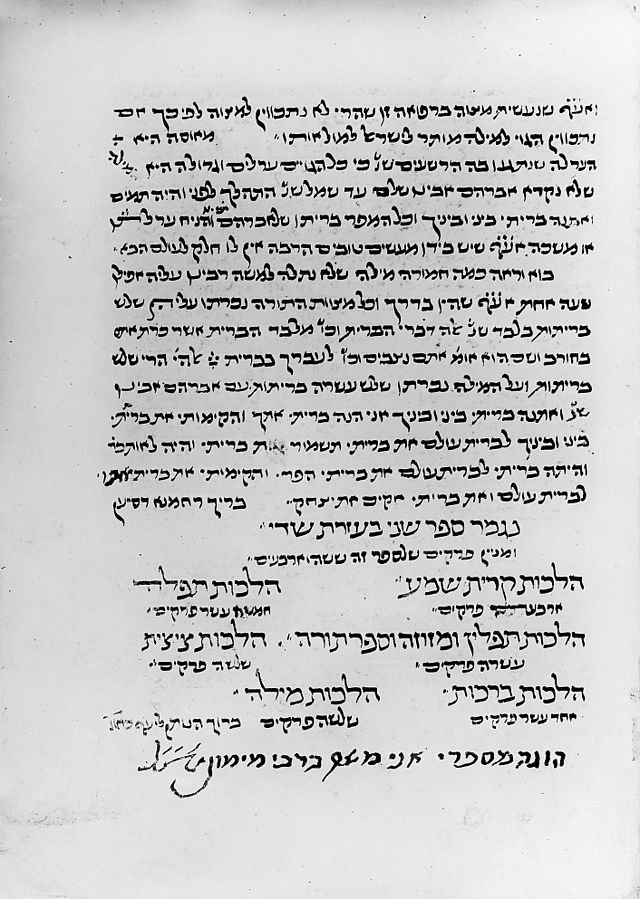 ואע״פ שנעשית מצוה ברפואה זו שהרי לא נתכוון למצוה לפיכך אם
נתכוון הגוי למילה מותר לישראל למול אותו מאוסה היא
הערלה שנתגנו בה הרשעים שנ׳ כי כל הגוים ערלים וגדולה היא
שלא נקרא אברהם אבינו שלם עד שמל שנ׳ התהלך לפני והיה תמים
ואתנה בריתי ביני ובינך וכל המפר בריתו שלאברהם והניח ערלתו
או משכה אע״פ שיש בידו מעשים טובים הרבה אין לו חלק לעולם הבא
בוא וראה כמה חמורה מילה שלא נתלה למשה רבינו עליה אפילו
שעה אחת אע״פ שהיו בדרך וכל מצות התורה נכרתו עליהן שלש
בריתות בלבד שנ׳ אלה דברי הברית וכו׳ מלבד הברית אשר כרת אתם
בחורב ושם הוא אומ׳ אתם נצבים וכו׳ לעברך בברית ייי אלהי׳ הרי שלש
בריתות ועל המילה נכרתו שלש עשרה בריתות עם אברהם אבינו
שנ׳ ואתנה בריתי ביני ובינך אני הנה בריתי אתך והקימותי את בריתי
ביני ובינך לברית עולם את בריתי תשמור את בריתי והיה לאות ברי׳
והיתה בריתי לברית עולם את בריתי הפר והקימתי את בריתי אתו
לברית עולם ואת בריתי אקים את יצחק בריך רחמנא דסיען
נגמר ספר שני בעזרת שדי
ומנין פרקים שלספר זה ששה וארבעים
הלכות קרית שמע הלכות תפלה
ארבעה פרקים חמשה עשר פרקים
הלכות תפלין ומזוזה וספר תורה הלכות ציצית
עשרה פרקים שלשה פרקים
הלכות ברכות הלכות מילה
אחד עשר פרקים שלשה פרקים ברוך הנותן ליעף כח
הוגה מספרי אני משה ברבי מימון